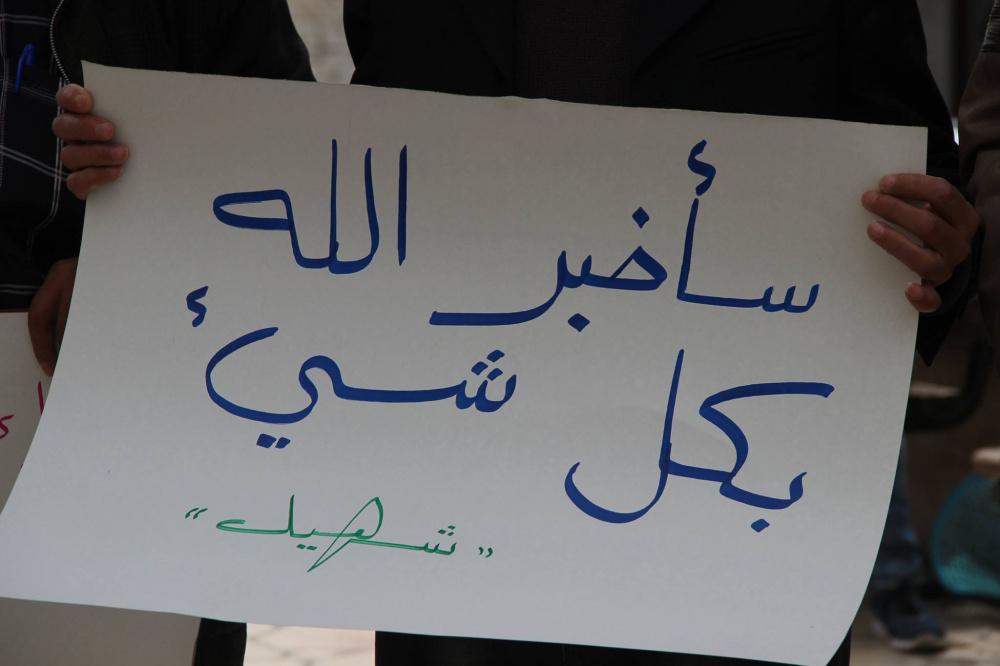 سأخبر الله
بكل شيء
"شهيد"